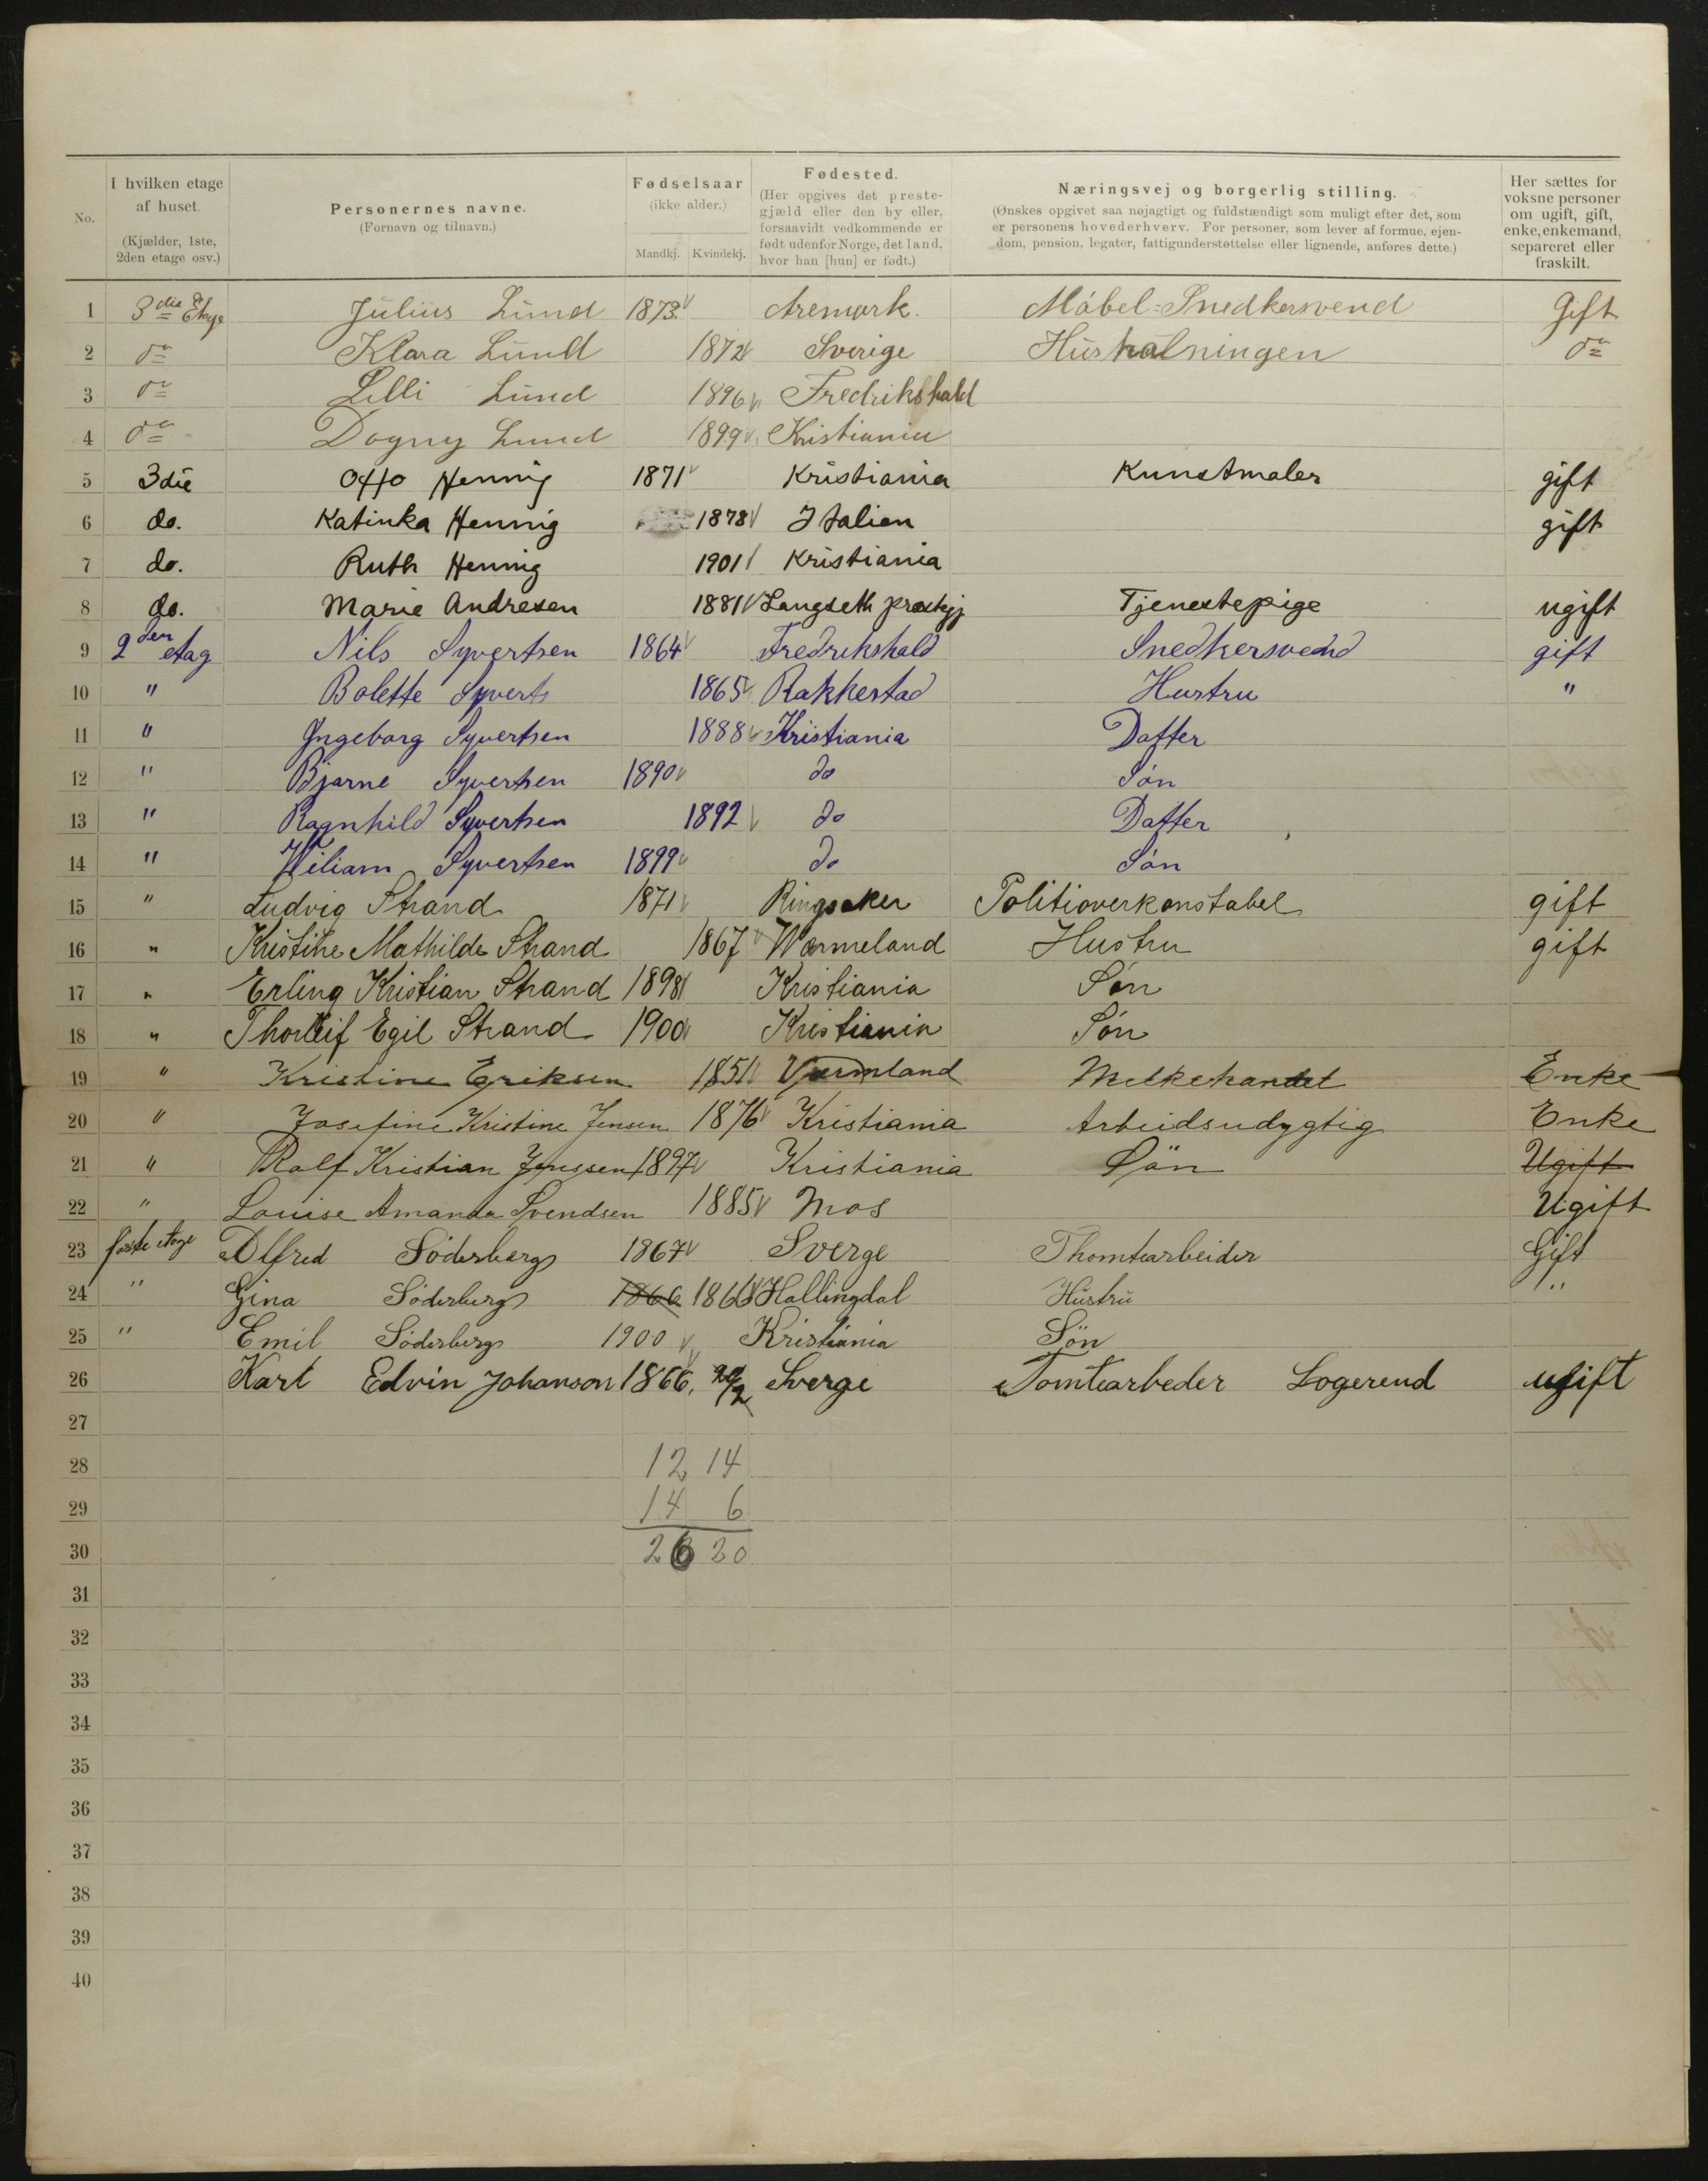 No.
I hvilken etage af huset. (Kjælder, 1ste, 2den etage osv.)
Personernes navne. (Fornavn og tilnavn.)
Fødselsaar (ikke alder.) Mandkj. Kvindekj.
Fødested. (Her opgives det prestegjæld eller den by eller, forsaavidt vedkommende er født udenfor Norge, det land, hvor han [hun] er født.)
Næringsvej og borgerlig stilling. (Ønskes opgivet saa nøjagtigt og fuldstændigt som muligt efter det, som er personens hovederhverv. For personer, som lever af formue, ejendom, pension, legater, fattigunderstøttelse eller lignende, anføres dette.)
Her sættes for voksne personer om ugift, gift, enke, enkemand, separeret eller fraskilt.
1 3die Etage Julius Lund 1873 Aremark. Møbel-Snedkersvend Gift
2 do Klara Lund 1872 Sverige Husholningen do
3 do Lilli Lund 1896 Fredrikshald
4 do Dagny Lund 1899 Kristiania
5 3die Otto Hennig 1871 Kristiania Kunstmaler gift
6 do. Katinka Hennig 1878 Italien gift
7 do. Ruth Hennig 1901 Kristiania
8 do. Marie Andresen 1881 Langseth prestgj Tjenestepige ugift
9 2den etag Nils Syvertsen 1864 Fredrikshald Snedkersvend gift
10 " Bolette Syverts 1865 Rakkestad Hustru "
11 " Ingeborg Syvertsen 1888 Kristiania Datter
12 " Bjarne Syvertsen 1890 do Søn
13 " Ragnhild Syvertsen 1892 do Datter
14 " Wiliam Syvertsen 1899 do Søn
15 " Ludvig Strand 1871 Ringsaker Politioverkonstabel gift
16 " Kristine Mathilde Strand 1867 Wermeland Hustru gift
17 " Erling Kristian Strand 1898 Kristiania Søn
18 " Thorleif Egil Strand 1900 Kristiania Søn
19 " Kristine Eriksen 1851 Vermland Melkehandel Enke
20 " Josefine Kristine Jensen 1876 Kristiania Arbeidsudygtig Enke
21 " Ralf Kristian Jenssen 1897 Kristiania Søn Ugift
22 " Louise Amanda Svendsen 1885 Mos Ugift
23 første etage Alfred Söderberg 1867 Sverge Thomtearbeider Gift
24 " Gina Söderberg 1866 1866 Hallingdal Hustru "
25 " Emil Söderberg 1900 Kristiania Søn
26 Karl Edvin Johanson 1866, 20/2 Sverge Tomtearbeder Logerend ugift
27
28 12 14
29 14 6
30 26 20
31
32
33
34
35
36
37
38
39
40